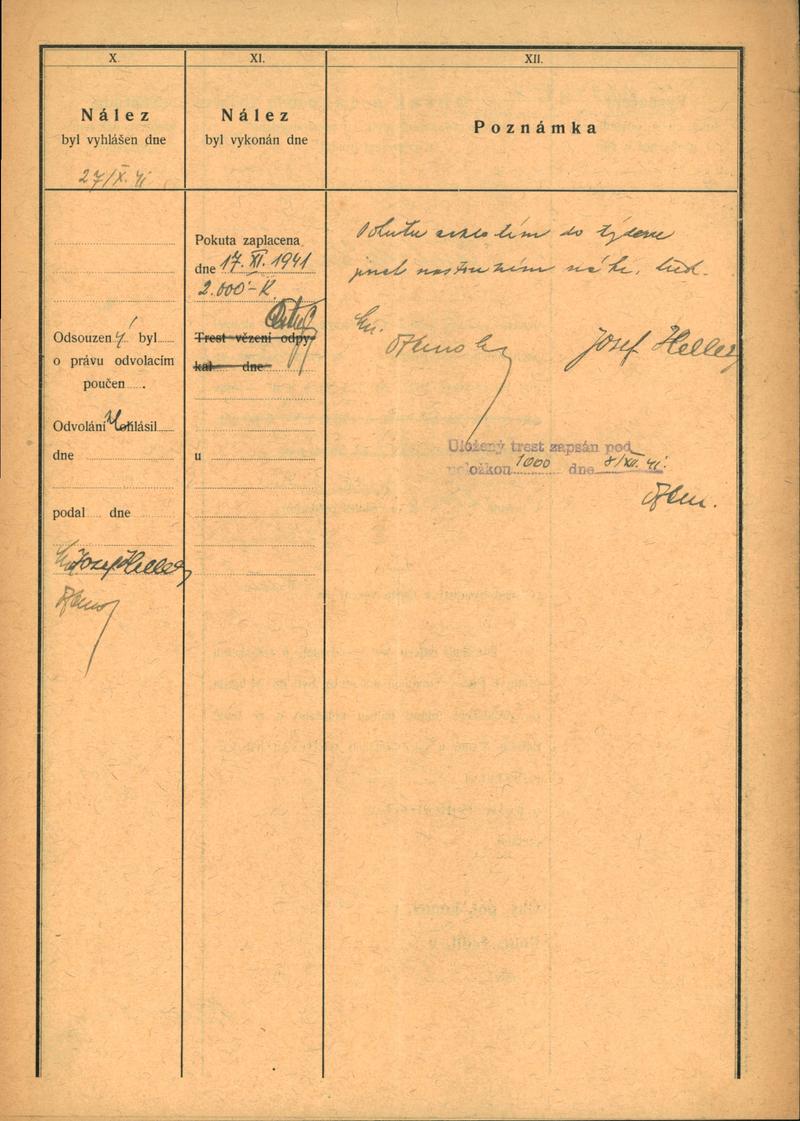 X.
XI.
XII.
Nález
byl vyhlášen dne
27/X. 41
Nález
byl vykonán dne
Poznámka
Odsouzený byl
o právu odvolacím
poučen .
Odvolání ohlásil
dne
podal dne
Josef Heller
Pokuta zaplacena
dne 17. XI. 1941
2.000 - K.
Trest vězení odpy-
kal dne
u
Pokutu do týdne
jinak
Josef Heller
Uložený trest zapsán pod
položkou 1000 dne 8/XII. 41.